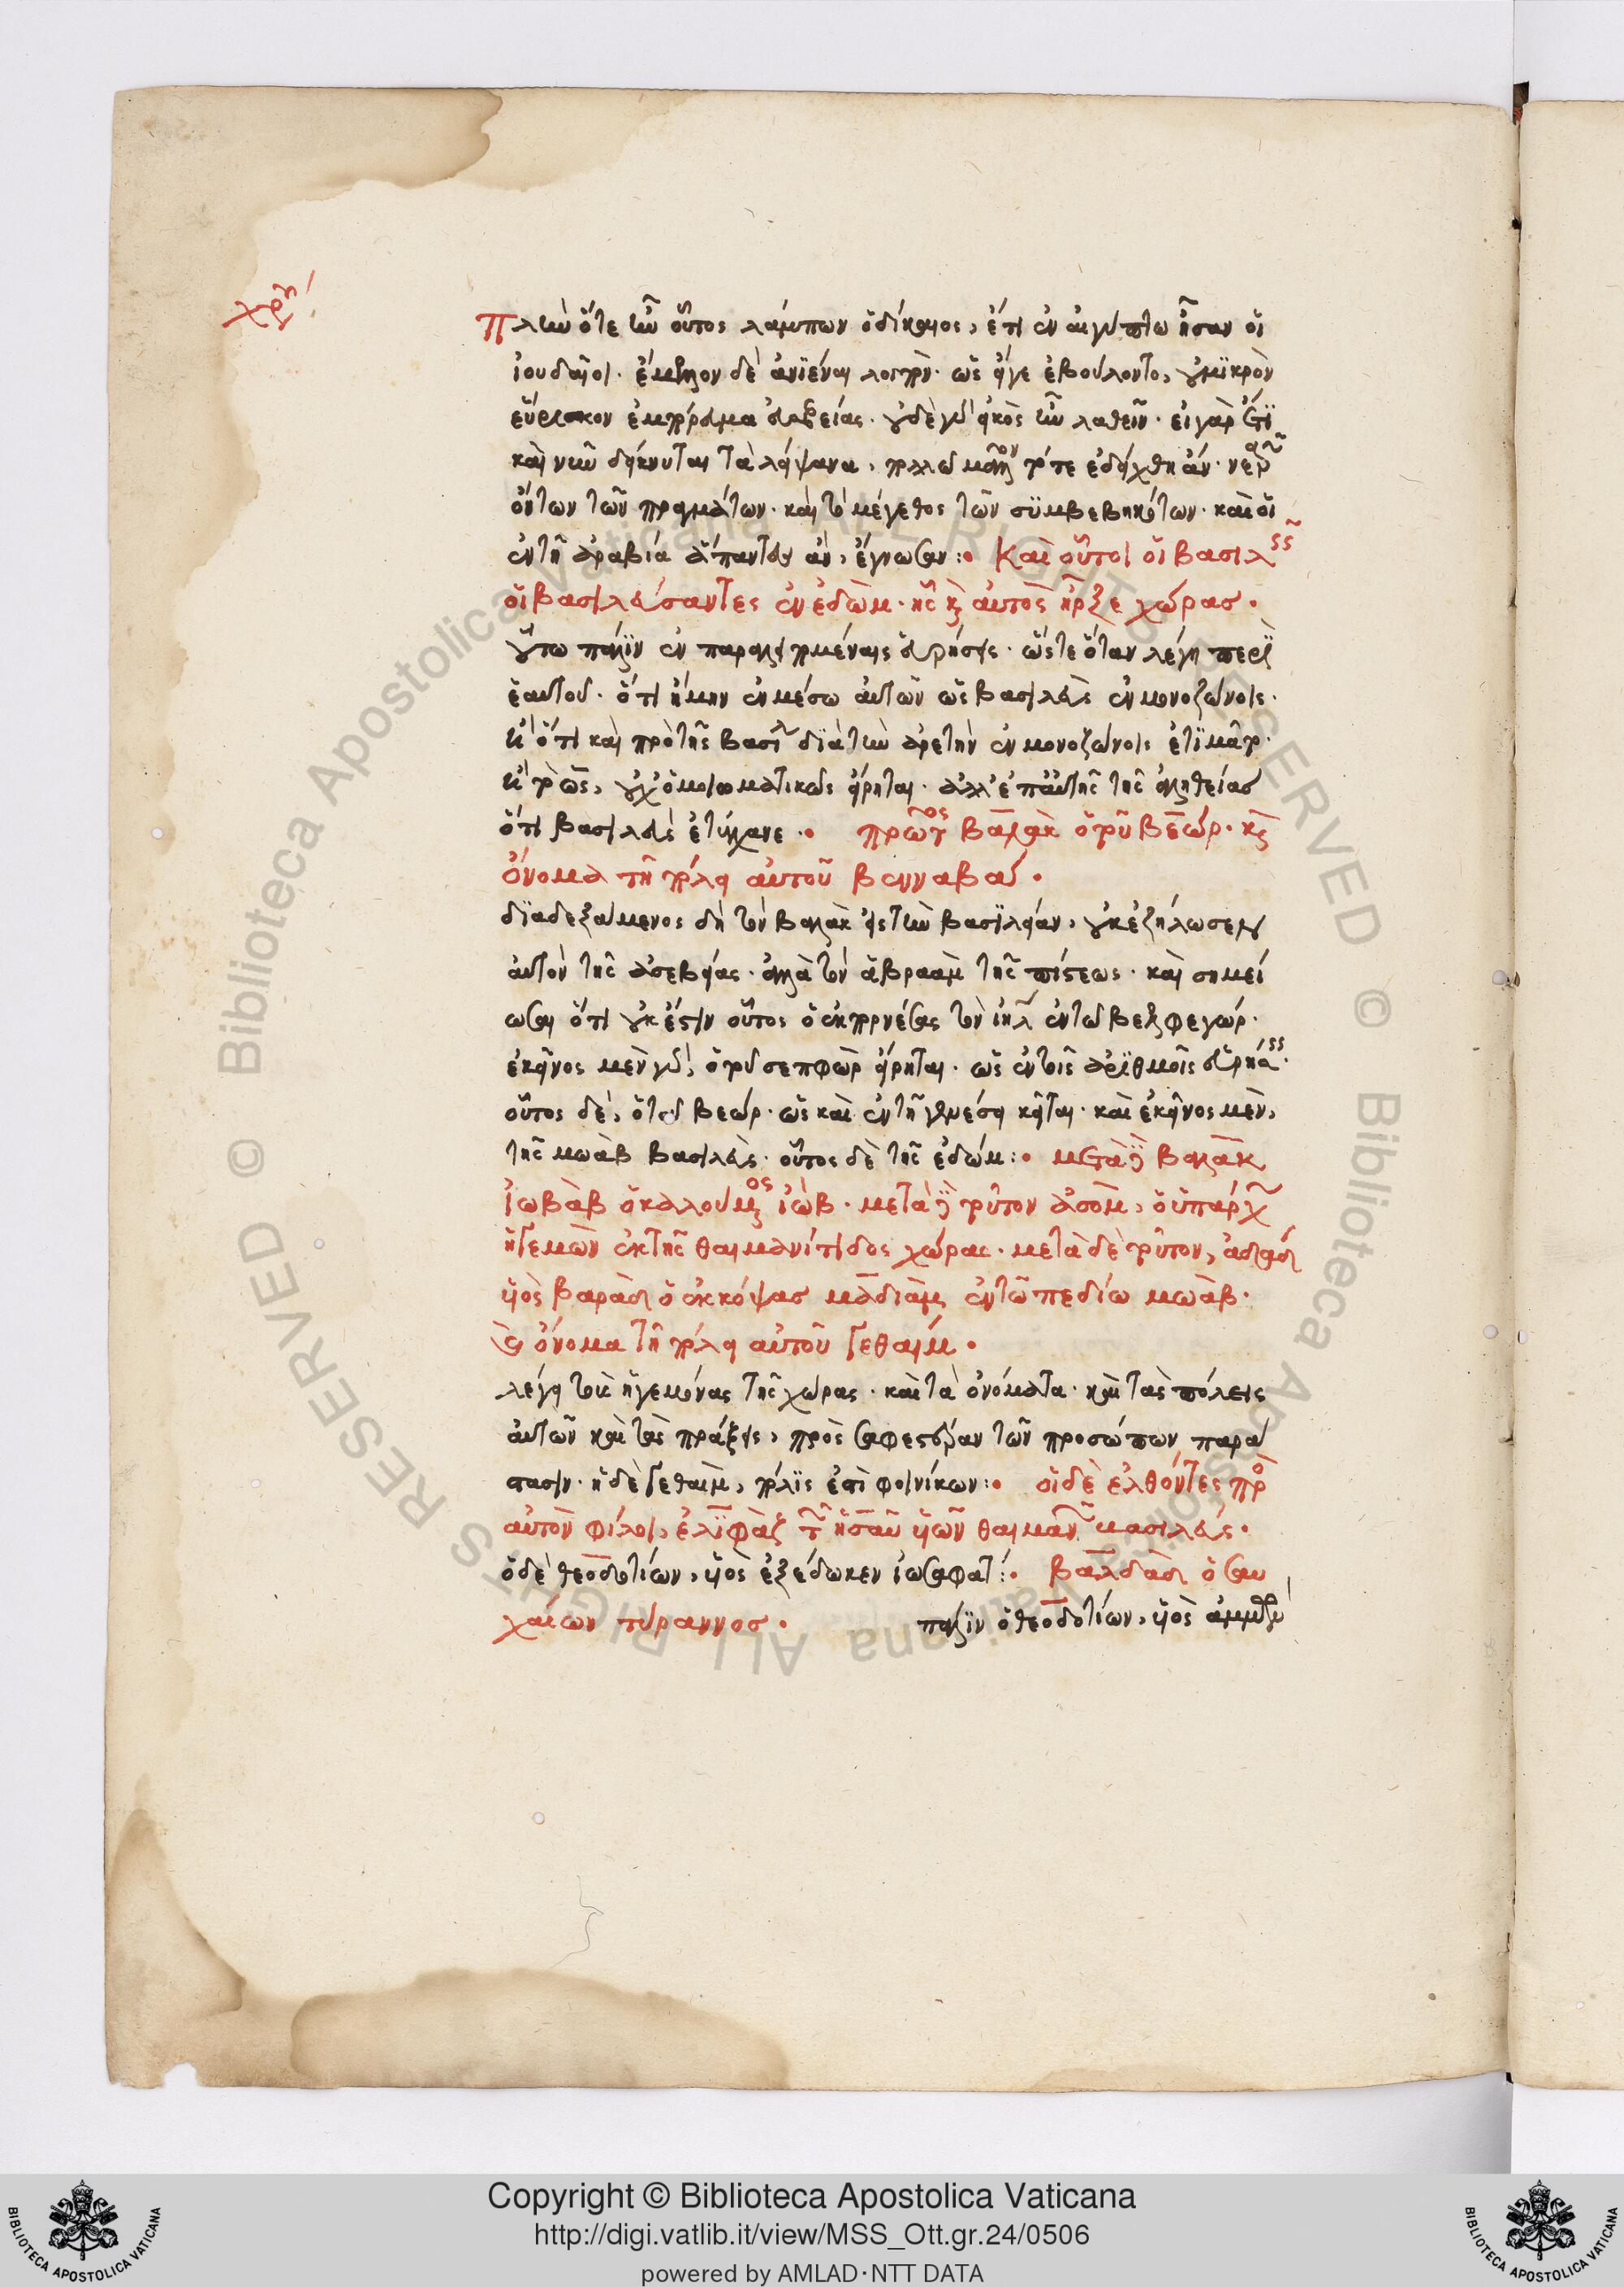 χρη
Πλὴν ὅτε ἦν οὗτος λάμπων ὁ δίκαιος, ἔτι ἐν αἰγύπτω ἦσαν οἱ
ἰουδαῖοι· ἔμελλον δὲ ἀνϊέναι λοιπόν· ὡς εἴγε ἐβούλοντο, οὐ μϊκρὸν
εὕρισκον εὐσεβείας· οὐδὲ γὰρ εἰκὸς ἦν λαθεῖν· εἰ γὰρ ἔτϊ
καὶ νῦν δείκνυται τὰ λείψανα, πολλῶ μᾶλλον τότε ἐδείχθη ἄν· νεαρῶν
ὄντων τῶν πραγμάτων· καὶ τὸ μέγεθος τῶν σϋμβεβηκότων· καὶ οἱ
ἐν τῆ ἀραβία ἅπαντες ἂν, ἔγνωσαν: Καὶ οὗτοι οἱ βασιλεῖς
οἱ βασιλεύσαντες ἐν ἐδὼμ· ἧς καὶ αὐτὸς ἦρξε χώρας.
οὕτω πάλϊν ἐν παραλελειμμέναις εὑρήσεις· ὥστε ὅταν λέγη περὶ
ἑαυτοῦ· ὅτι ἤμην ἐν μέσω αὐτῶν ὡς βασιλεὺς ἐν μονοζώνοις·
καὶ ὅτι καὶ πρὸ τῆς βασιλ δϊὰ τὴν ἀρετὴν ἐν μονοζώνοις ἐτϊμᾶτο·
καὶ τὸ ὡς, οὐχ ὁμοιωματικῶς εἴρηται· ἀλλ' ἐπ' αὐτῆς τῆς ἀληθείας
ὅτι βασιλεὺς ἐτύγχανε. πρῶτος βαλὰκ ὁ τοῦ βεώρ· καὶ
ὄνομα τῆ πόλει αὐτοῦ βενναβαί.
δϊαδεξάμενος δὴ τὸν βαλὰκ εἰς τὴν βασϊλείαν, οὐκ ἐζήλωσεν
αὐτὸν τῆς ἀσεβείας· ἀλλὰ τὸν ἀβραὰμ τῆς πίστεως· καὶ σημεί
ωσαι ὅτι οὐκ ἔστιν οὗτος ὁ ἐκπορνεύσας τὸν ἰηλ ἐν τῶ βεελφεγώρ·
ἐκεῖνος μὲν γὰρ, ὁ τοῦ σεπφὼρ εἴρηται· ὡς ἐν τοῖς ἀρϊθμοῖς εὕρηται
οὗτος δὲ, ὁ τοῦ βεώρ· ὡς καὶ ἐν τῆ γενέσει κεῖται· καὶ ἐκεῖνος μὲν,
τῆς μωὰβ βασιλεὺς· οὗτος δὲ τῆς ἐδώμ: μετὰ δὲ βαλὰκ
ἰωβὰβ ὁ καλούμενος ἰὼβ· μετὰ δὲ τοῦτον ἀσὸμ, ὁ ὑπάρχων
ἡγεμὼν ἐκ τῆς θαιμανίτιδος χώρας· μετὰ δὲ τοῦτον, ἀδαδ
υἱὸς βαρὰδ ὁ ἐκκόψας μαδιὰμ ἐν τῶ πεδίω μωὰβ·
καὶ ὄνομα τῆ πόλει αὐτοῦ γεθαίμ.
λέγει τοὺς ἡγεμόνας τῆς χώρας· καὶ τὰ ὀνόματα· καὶ τὰς πόλεις
αὐτῶν καὶ τὰς πράξεις, πρὸς σαφεστέραν τῶν προσώπων παρά
στασιν· ἡ δὲ γεθαὶμ, πόλϊς ἐστὶ φοινίκων: οἱ δὲ ἐλθόντες πρὸς
αὐτὸν φίλοι, ἐλϊφὰζ τῶν ἡσαῦ υἱῶν θαιμανῶν βασιλεύς.
ὁ δὲ θεοδοτίων, υἱὸς ἐξέδωκεν ἰωσαφατ: βαλδὰδ ὁ σαυ
χαίων τύραννος. πάλϊν ὁ θεοδοτίων, υἱὸς
Copyright © Biblioteca Apostolica Vaticana
http://digi.vatlib.it/view/MSS_Ott.gr.24/0506
powered by AMLAD·NTT DATA
BIBLIOTECA APOSTOLICA VATICANA
BIBLIOTECA APOSTOLICA VATICANA
© Biblioteca Apostolica Vaticana ALL RIGHTS RESERVED
© Biblioteca Apostolica Vaticana ALL RIGHTS RESERVED